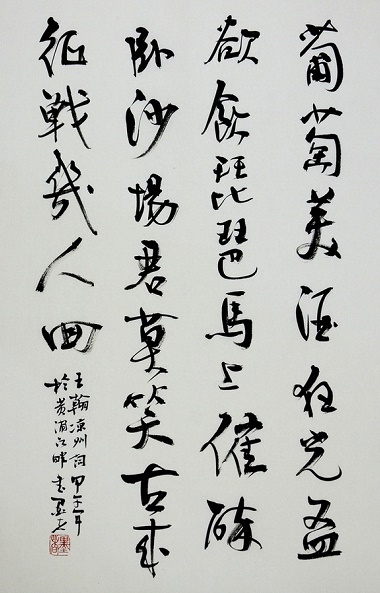 葡萄美酒夜光盃
欲飲琵琶馬上催醉
卧沙場君莫笑古来
征戰幾人回
王翰凉州詞甲午年
於江畔書